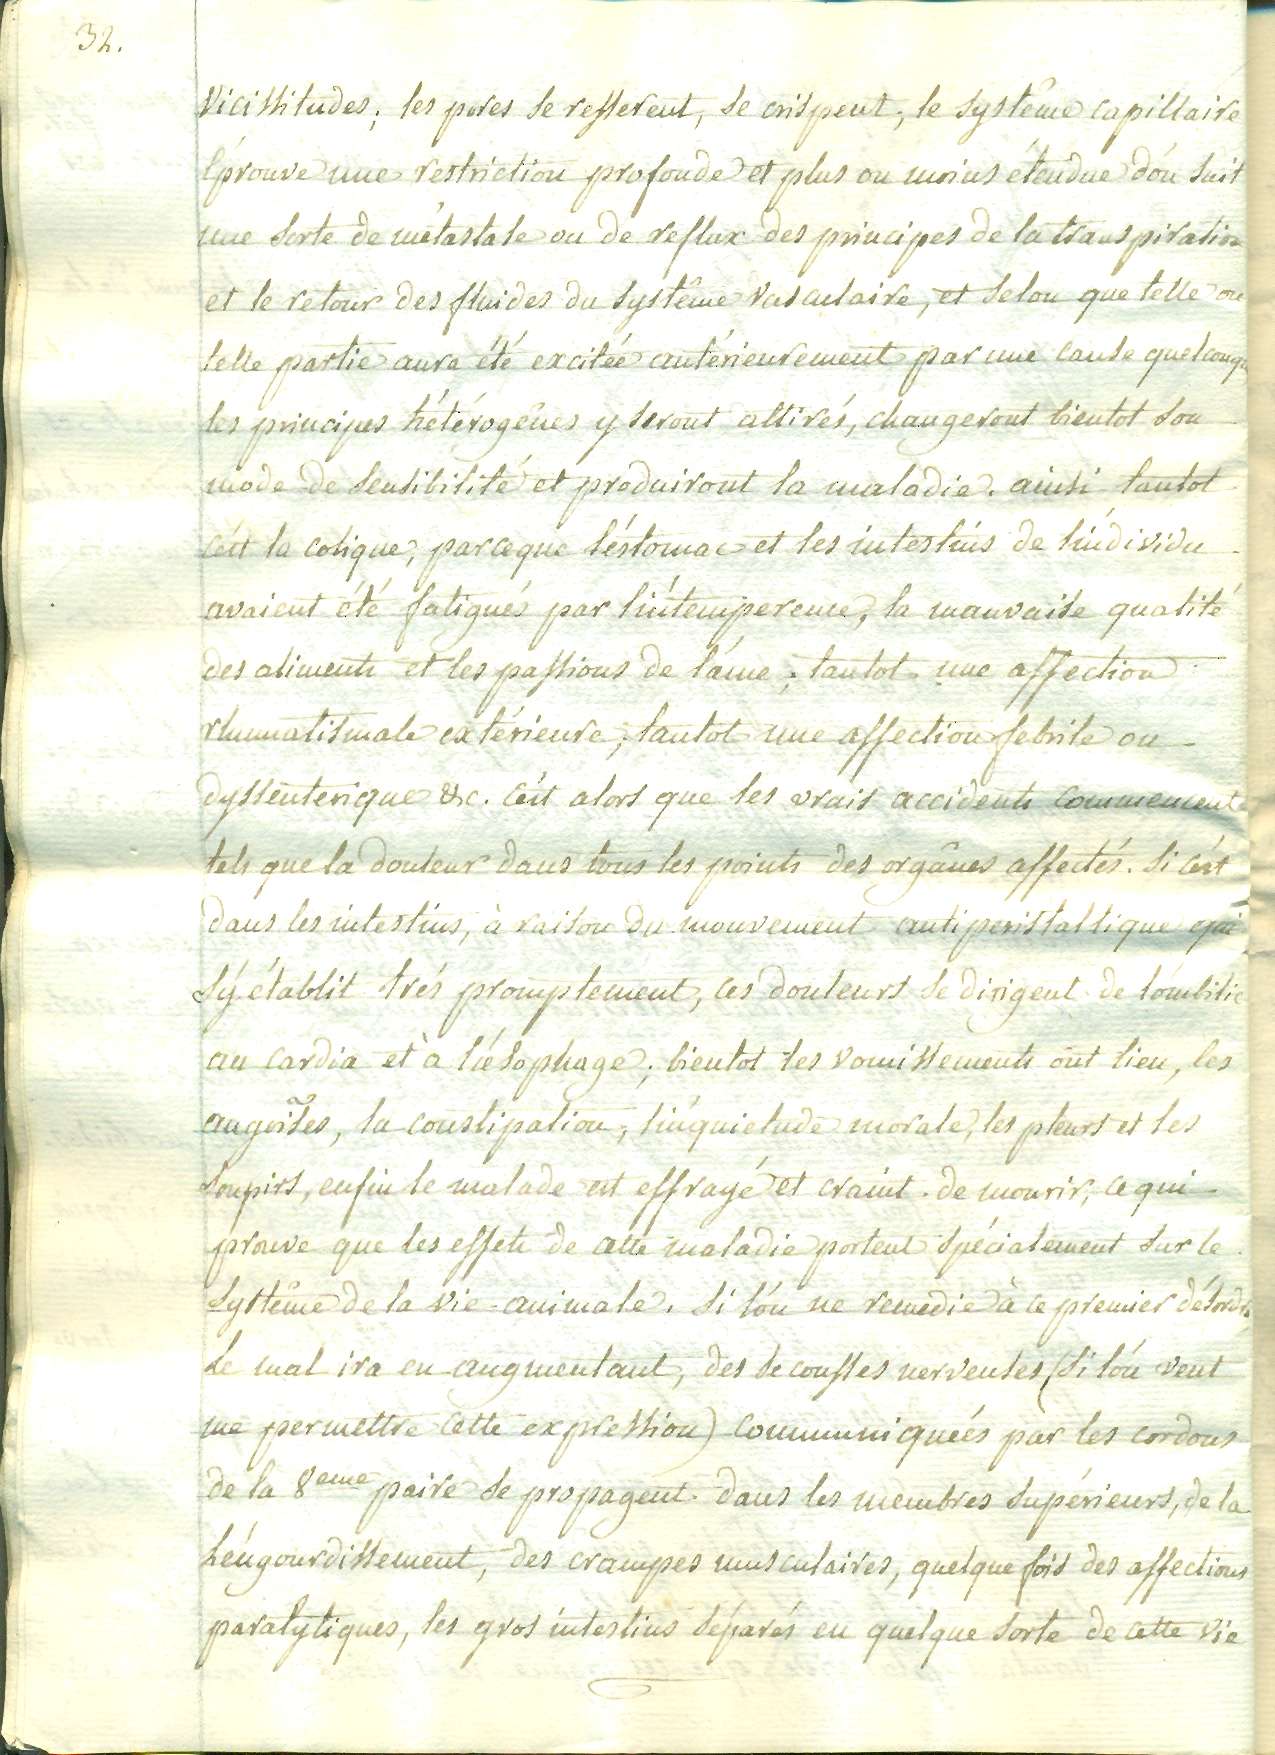 32.
Vicissitudes; les pores se resserent, se crispent; le systême capillaire
éprouve une restriction profonde et plus ou moins étendue d'ou suit
une sorte de métastase ou de reflux des principes de la transpiration
et le retour des fluides du systême vasculaire, et selon que telle ou
telle partie aura été excitée antérieurement par une cause quelconque
les principes hétérogênes y seront attirés, changeront bientot son
mode de sensibilité et produiront la maladie. ainsi tantot
c'est la colique, parceque l'éstomac et les intestins de l'individu
avaient été fatigués par l'intemperence, la mauvaise qualité
des aliments et les passions de l'ame; tantot une affection
rhumatismale extérieure; tantot une affection febrile ou
dyssenterique &c. c'est alors que les vrais accidents commencent
tels que la douleur dans tous les points des orgânes affectés. Si c'est
dans les intestins, à raison du mouvement antiperistaltique qui
s'y établit trés promptement, ces douleurs se dirigent de l'ombilic
au cardia et à l'œsophage; bientot les vomissements ont lieu, les
angoises, la constipation, l'inquietude morale, les pleurs et les
soupirs, enfin le malade est effrayé et craint de mourir, ce qui
prouve que les effets de cette maladie portent spécialement sur le
systême de la vie animale. Si l'on ne remedie à ce premier désordre
Le mal ira en augmentant, des secousses nerveuses (si l'on veut
me permettre cette expression) communiquées par les cordons
de la 8eme paire se propagent dans les membres supérieurs, de la
L'éngourdissement, des crampes musculaires, quelque fois des affections
paralytiques, les gros intestins séparés en quelque sorte de cette vie